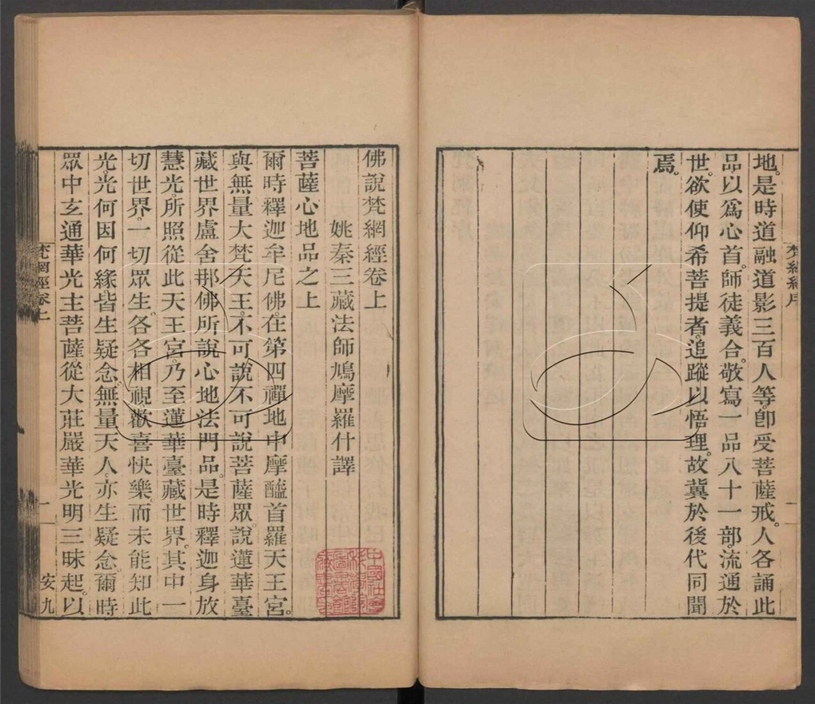 地是時道融道影三百人等卽受菩薩戒人各誦此
品以爲心首師徒義合敬寫一品八十一部流通於
世欲使仰希菩提者追蹤以悟理故冀於後代同聞
焉
佛說梵網經卷上
姚秦三藏法師鳩摩羅什譯
菩薩心地品之上
爾時釋迦牟尼佛在第四禪地中摩醯首羅天王宮
與無量大梵天王不可說不可說菩薩眾說蓮華臺
藏世界盧舍那佛所說心地法門品是時釋迦身放
慧光所照從此天王宮乃至蓮華臺藏世界其中一
切世界一切眾生各各相視歡喜快樂而未能知此
光光何因何緣皆生疑念無量天人亦生疑念爾時
眾中玄通華光主菩薩從大莊嚴華光明三昧起以
梵網經卷上
一
安九